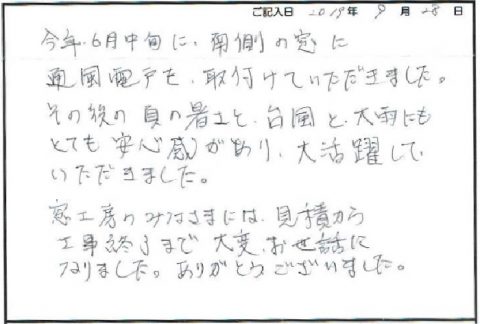 ご記入日 2019年 9月 28日
今年6月中旬に、南側の窓に
通風雨戸を、取付けていただきました。
その後の夏の暑さと、台風と、大雨にも
とても安心感があり、大活躍して
いただきました。
窓工房のみなさまには、見積から
工事終了まで大変、お世話に
なりました。ありがとうございました。